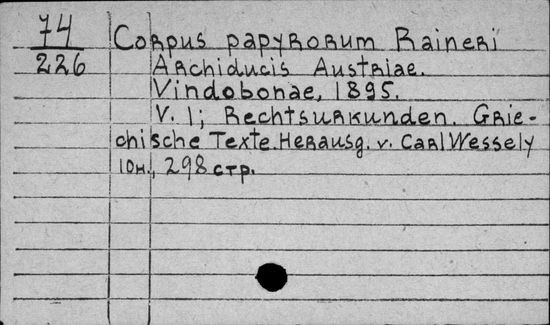 74
226
Corpus papyrorum Raineri
Archiducis Austriae.
Vindobonae, 1895.
V. I; Rechtsurkunden. Grie-
chische Texte. Herausg. v. Carl Wessely
10н., 298 стр.